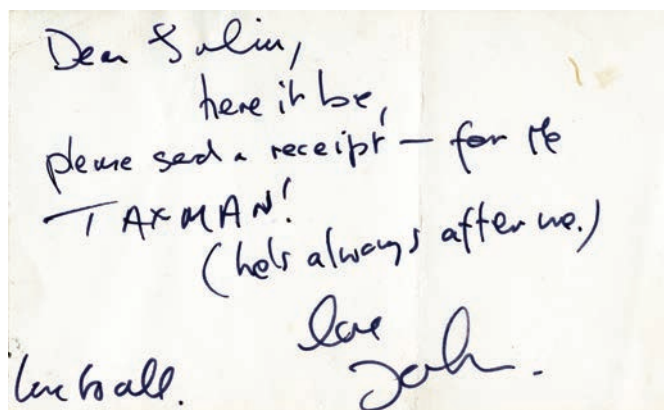 Dear Salin,
here it be,
please send a receipt — for the
TAXMAN!
(he's always after me.)
love
John.
love to all.